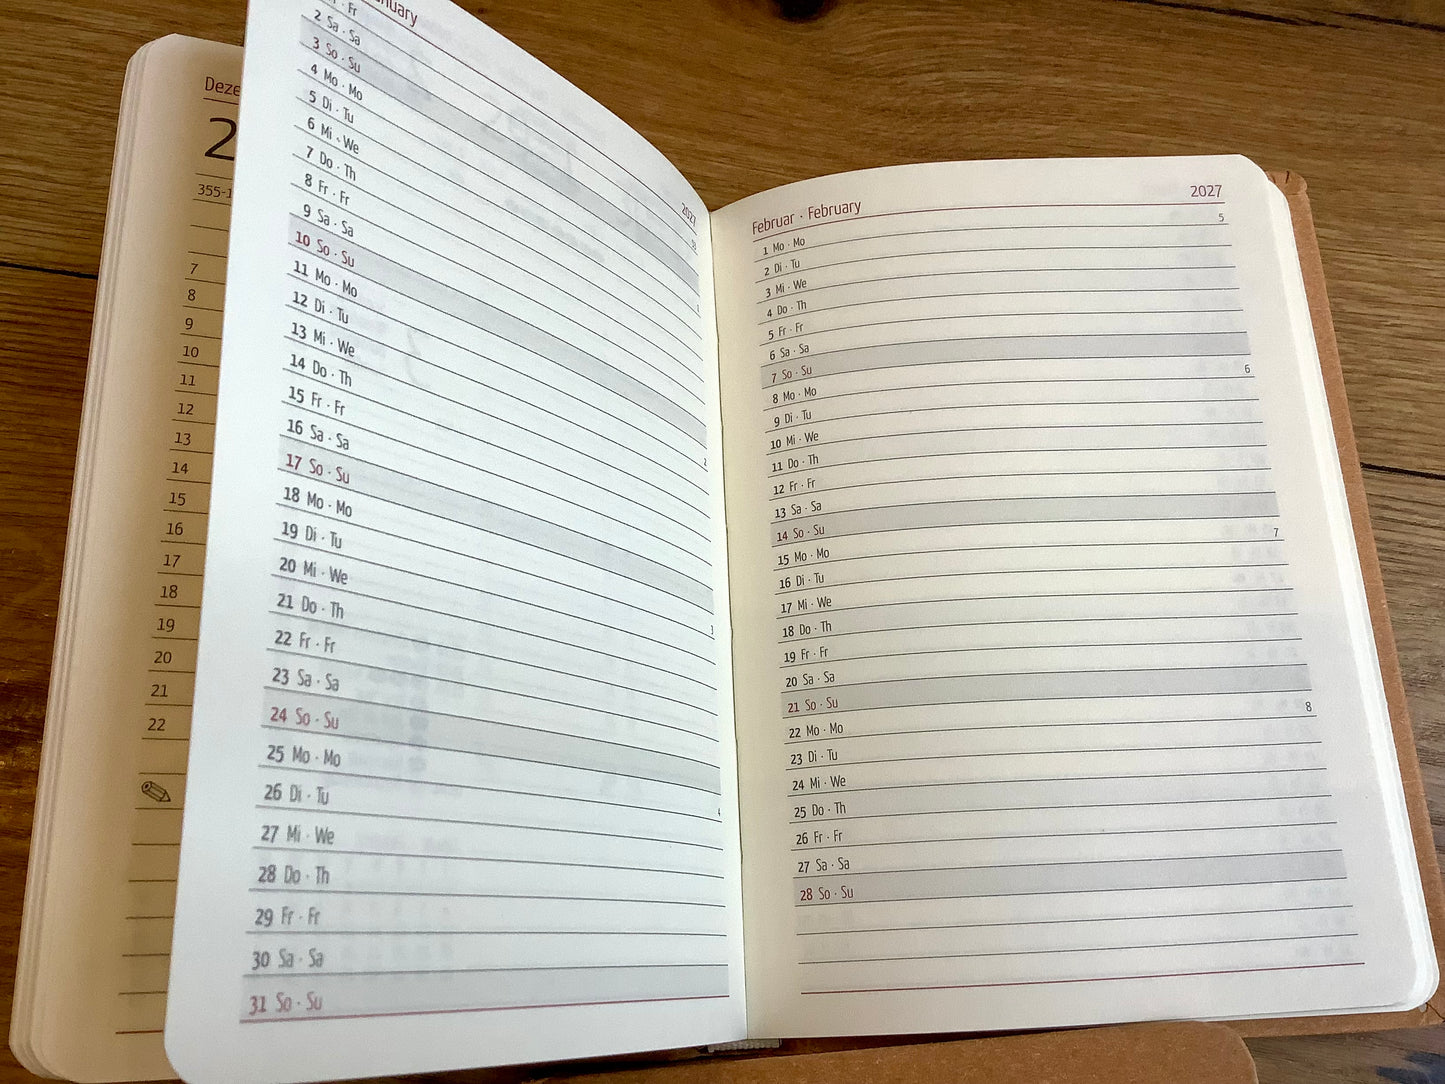 Deze
2
355-1
7
8
9
10
11
12
13
14
15
16
17
18
19
20
21
22
2027
Fr
2 Sa · Sa
3 So · Su
4 Mo · Mo
5 Di · Tu
6 Mi · We
7 Do · Th
8 Fr · Fr
9 Sa · Sa
10 So · Su
11 Mo · Mo 1
12 Di · Tu
13 Mi · We
14 Do · Th
15 Fr · Fr
16 Sa · Sa
17 So · Su
18 Mo · Mo 3
19 Di · Tu
20 Mi · We
21 Do · Th
22 Fr · Fr
23 Sa · Sa
24 So · Su
25 Mo · Mo 4
26 Di · Tu
27 Mi · We
28 Do · Th
29 Fr · Fr
30 Sa · Sa
31 So · Su
Februar · February 2027
1 Mo · Mo 5
2 Di · Tu
3 Mi · We
4 Do · Th
5 Fr · Fr
6 Sa · Sa
7 So · Su
8 Mo · Mo 6
9 Di · Tu
10 Mi · We
11 Do · Th
12 Fr · Fr
13 Sa · Sa
14 So · Su
15 Mo · Mo 7
16 Di · Tu
17 Mi · We
18 Do · Th
19 Fr · Fr
20 Sa · Sa
21 So · Su
22 Mo · Mo 8
23 Di · Tu
24 Mi · We
25 Do · Th
26 Fr · Fr
27 Sa · Sa
28 So · Su